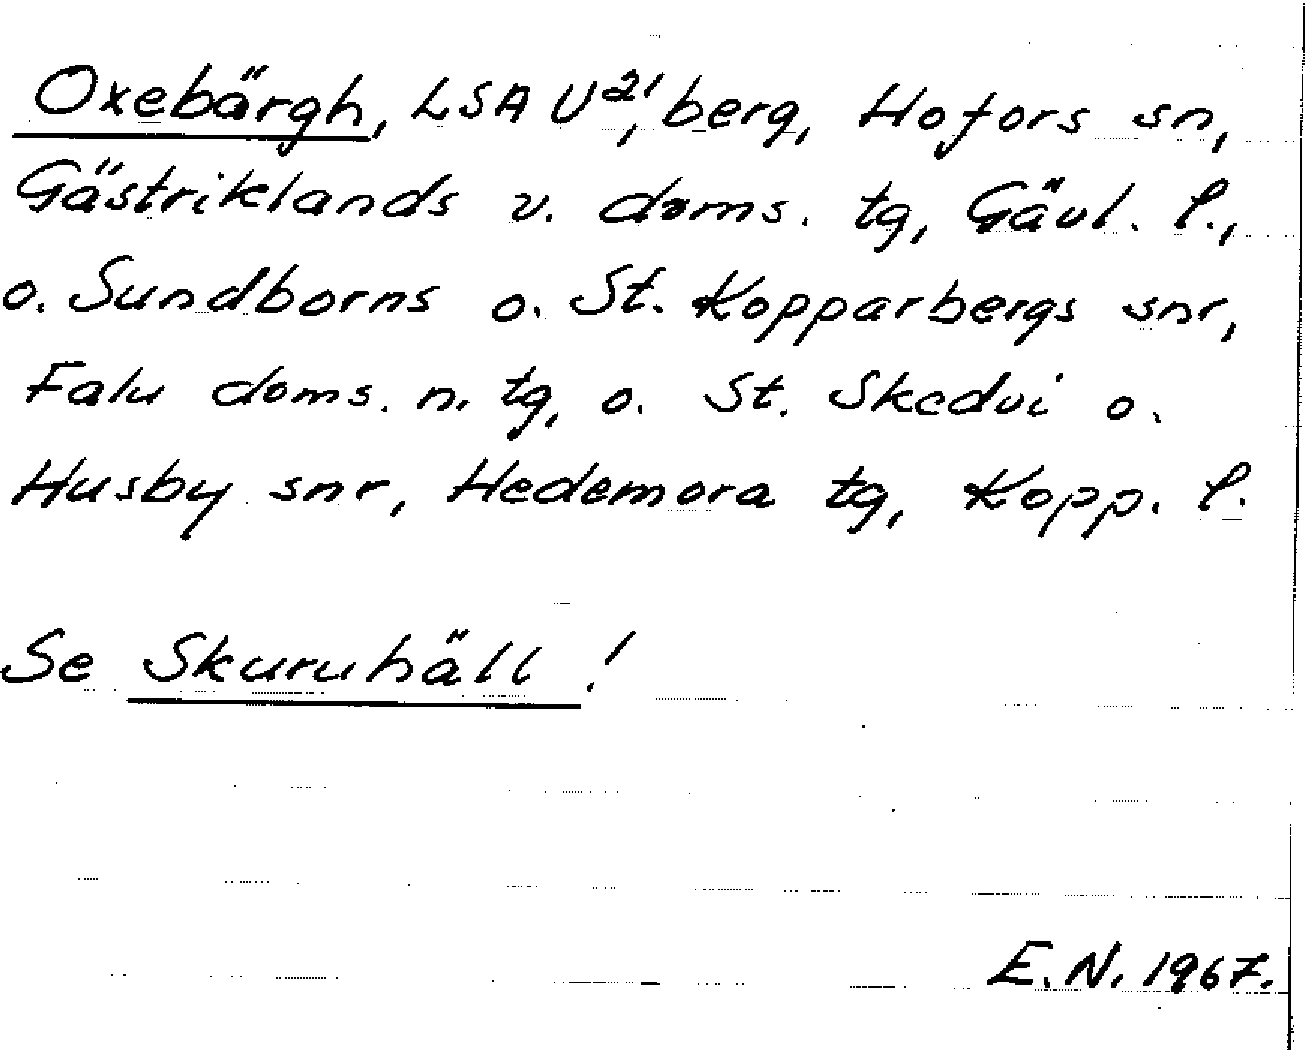 Oxebärgh, LSA U²¹, berg, Hofors sn,
Gästriklands v. doms. tg, Gävl. l.,
o. Sundborns o. St. Kopparbergs snr,
Falu doms. n. tg, o. St. Skedvi o.
Husby snr, Hedemora tg, Kopp. l.
Se Skuruhäll!
E.N. 1967.